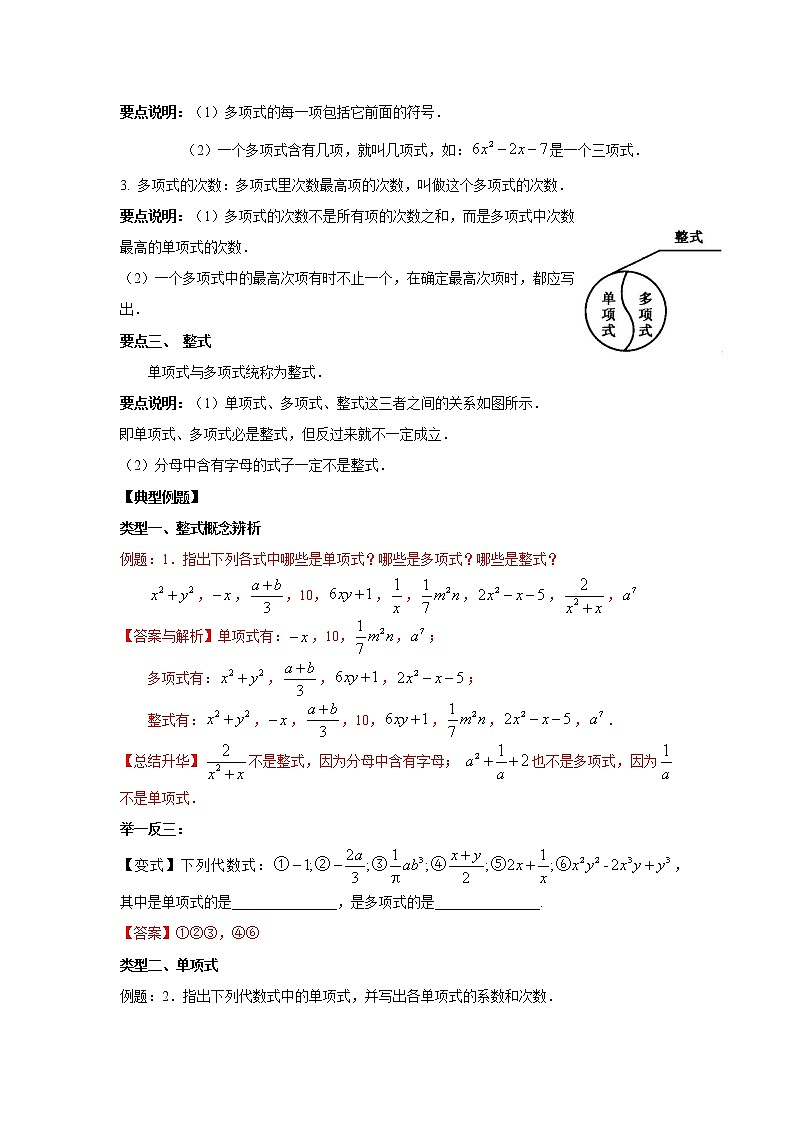 要点说明：（1）多项式的每一项包括它前面的符号．
（2）一个多项式含有几项，就叫几项式，如：6x²－2x－7是一个三项式．
3. 多项式的次数：多项式里次数最高项的次数，叫做这个多项式的次数．
要点说明：（1）多项式的次数不是所有项的次数之和，而是多项式中次数
最高的单项式的次数．
（2）一个多项式中的最高次项有时不止一个，在确定最高次项时，都应写
出．
整式
单项式
多项式
要点三、 整式
单项式与多项式统称为整式．
要点说明：（1）单项式、多项式、整式这三者之间的关系如图所示．
即单项式、多项式必是整式，但反过来就不一定成立．
（2）分母中含有字母的式子一定不是整式．
【典型例题】
类型一、整式概念辨析
例题：1．指出下列各式中哪些是单项式？哪些是多项式？哪些是整式？
x²＋y²，－x，(a+b)/3，10，6xy＋1，1/x，1/7 m²n，2x²－x－5，2/(x²+x)，a⁷
【答案与解析】单项式有：－x，10，1/7 m²n，a⁷；
多项式有：x²＋y²，(a+b)/3，6xy＋1，2x²－x－5；
整式有：x²＋y²，－x，(a+b)/3，10，6xy＋1，1/7 m²n，2x²－x－5，a⁷．
【总结升华】2/(x²+x)不是整式，因为分母中含有字母； a²＋1/a＋2也不是多项式，因为1/a
不是单项式．
举一反三：
【变式】下列代数式：①－1;②－2a/3;③1/π ab³;④(x+y)/2;⑤2x＋1/x;⑥x²y²-2x³y＋y³，
其中是单项式的是_______________，是多项式的是_______________.
【答案】①②③，④⑥
类型二、单项式
例题：2．指出下列代数式中的单项式，并写出各单项式的系数和次数．